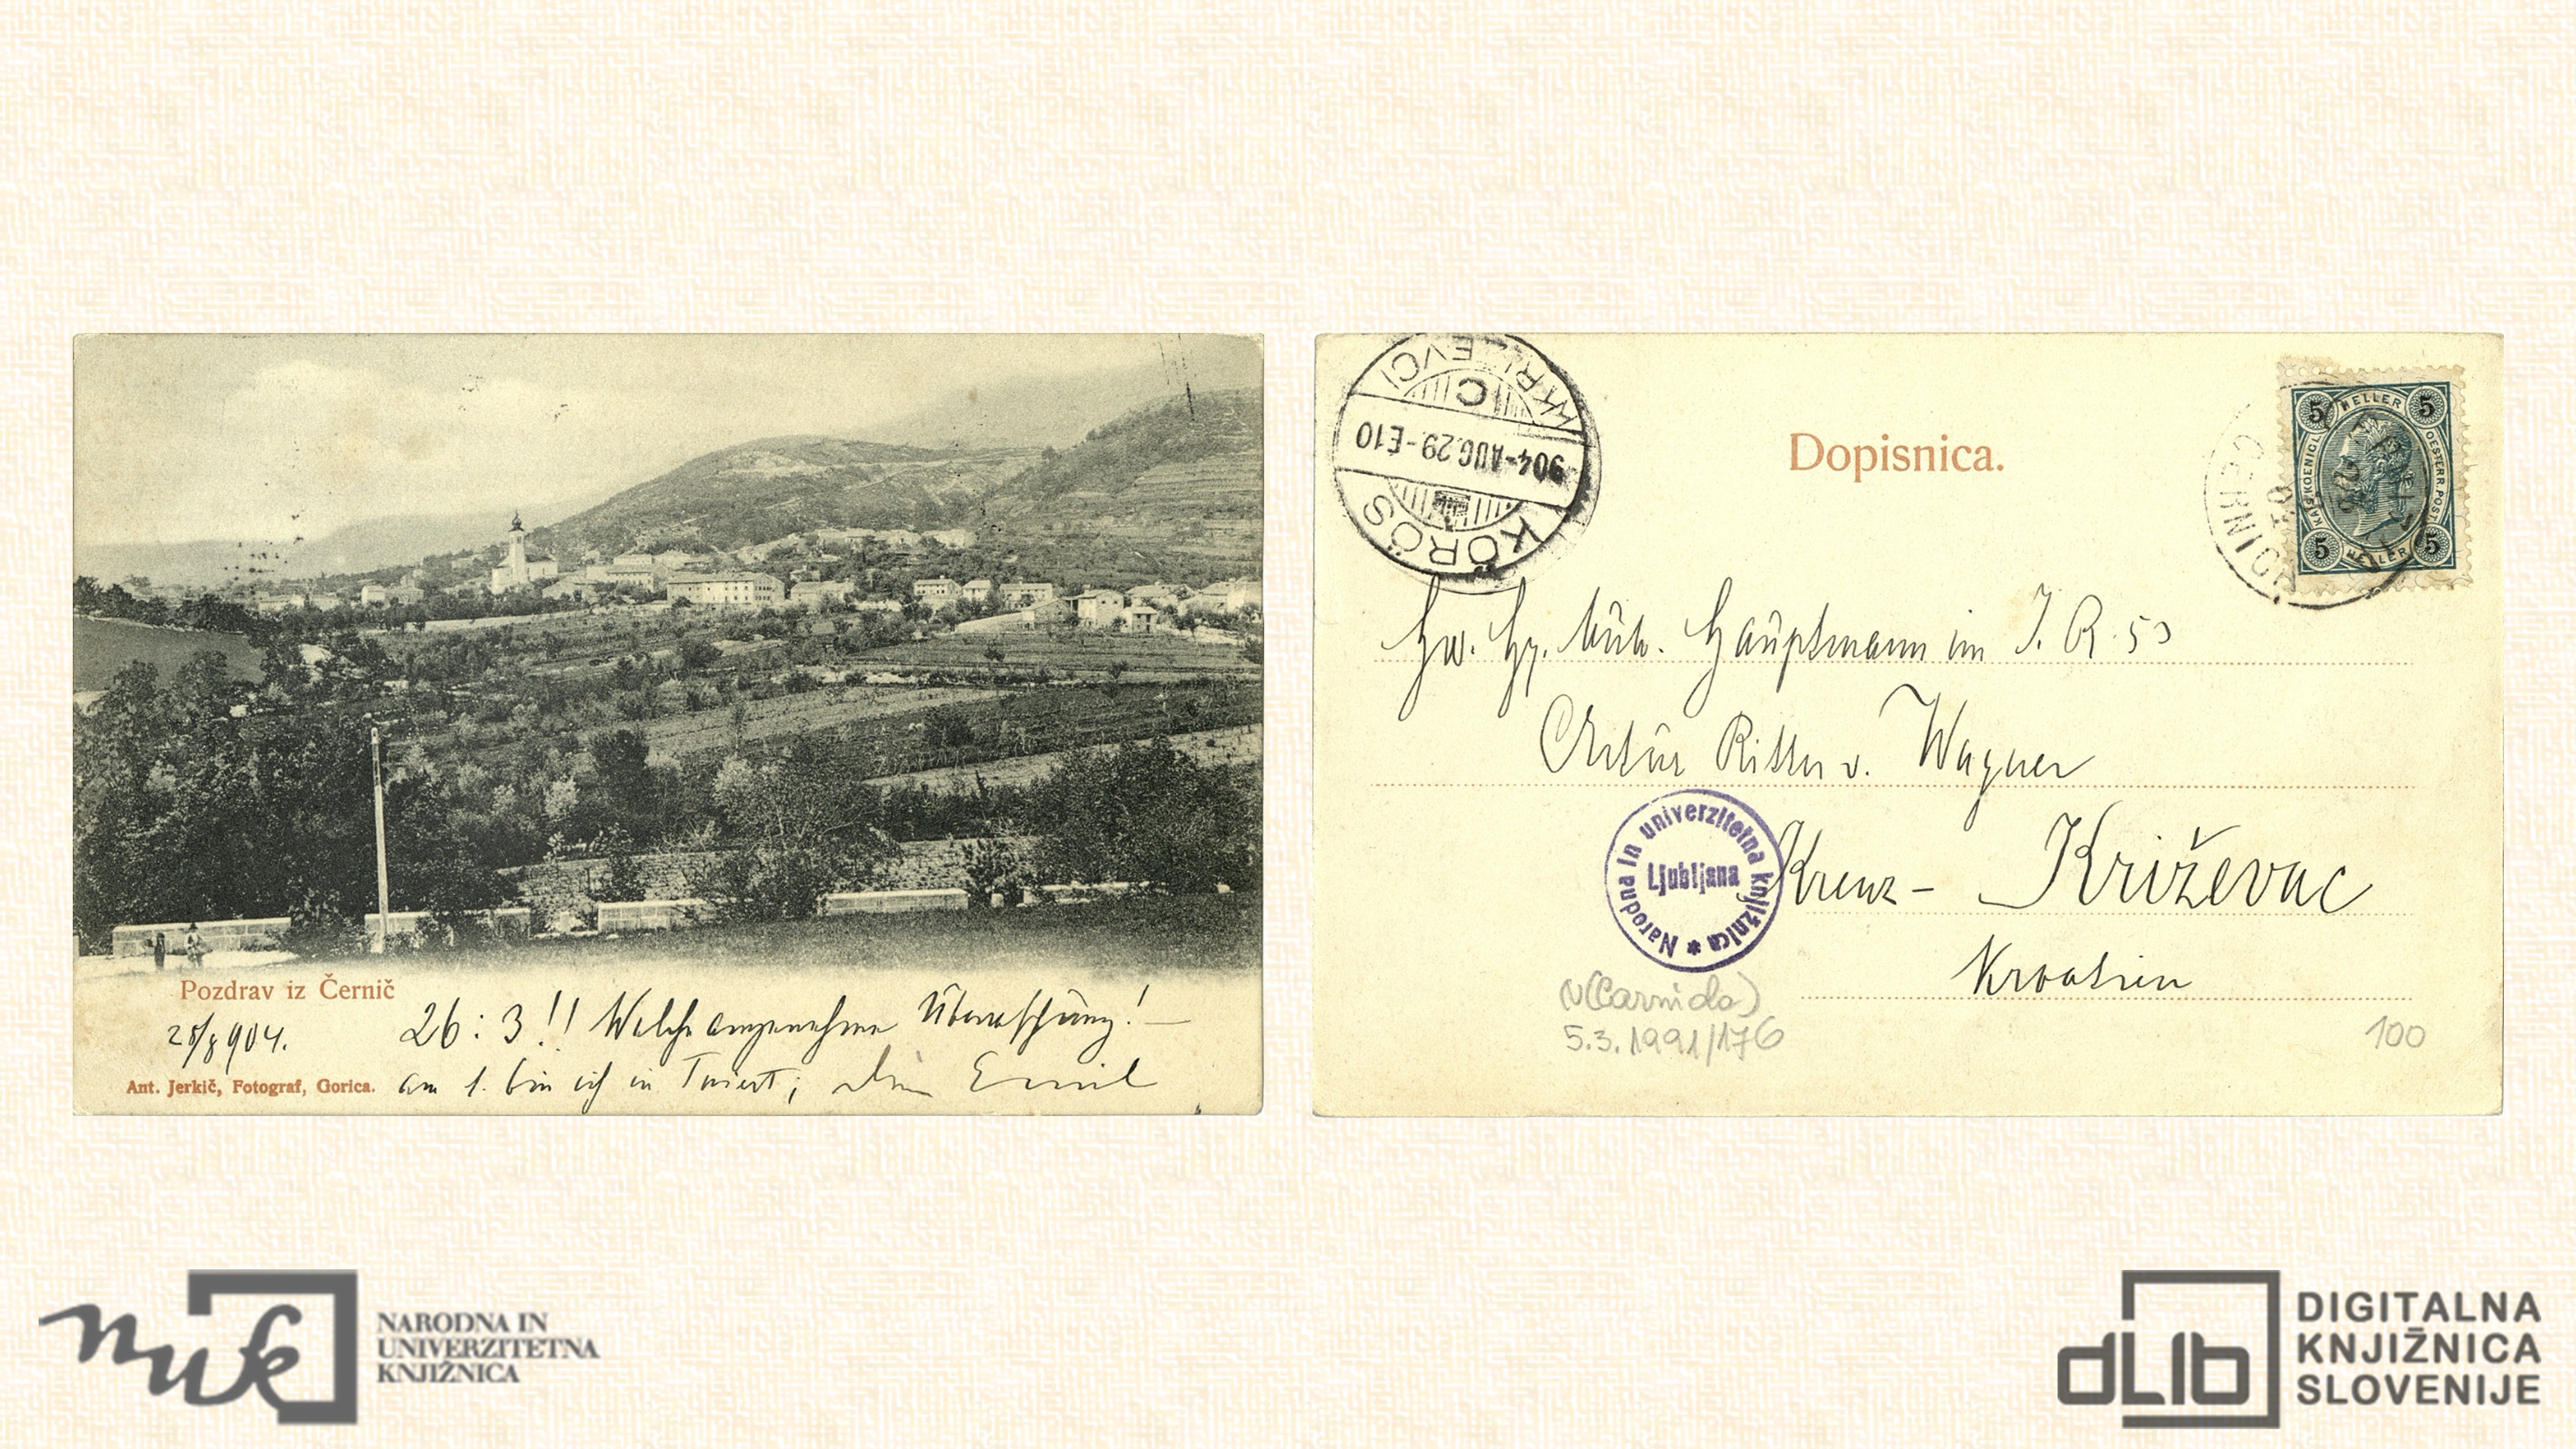 Pozdrav iz Černič
28/8 904.
26:3!! Welch angenehme Überraschung! —
Ant. Jerkič, Fotograf, Gorica.
am 1. bin ich in Triest; Dein Emil
KÖRÖS
904-AUG.29-E10
C
Dopisnica.
5 HELLER 5
KAIS. KOENIGL. OESTERR. POST
5 HELLER 5
CERNICA
Hauptmann im I. R. 53
Artur Ritter v. Wagner
Kreuz - Križevac
Kroatien
Narodna in univerzitetna knjižnica *
Ljubljana
5.3.1991/176
100
nuk
NARODNA IN
UNIVERZITETNA
KNJIŽNICA
dLib
DIGITALNA
KNJIŽNICA
SLOVENIJE